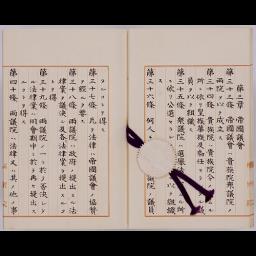 第三章 帝國議會
第三十三條 帝國議會ハ貴族院衆議院ノ
兩院ヲ以テ成立ス
第三十四條 貴族院ハ貴族院令ノ定ムル
所ニ依リ皇族華族及勅任セラレタル議
員ヲ以テ組織ス
第三十五條 衆議院ハ選擧
ニ依リ公選セ ヲ以テ組織
ス
第三十六條 何人モ 議院ノ議員
タルコトヲ得ス
第三十七條 凡テ法律ハ帝國議會ノ協贊
ヲ經ルヲ要ス
第三十八條 兩議院ハ政府ノ提出スル法
律案ヲ議決シ及各法律案ヲ提出スル
コトヲ得
第三十九條 兩議院ノ一ニ於テ否決シタ
ル法律案ハ同會期中ニ於テ再ヒ提出ス
ルコトヲ得ス
第四十條 兩議院ハ法律又ハ其ノ他ノ事